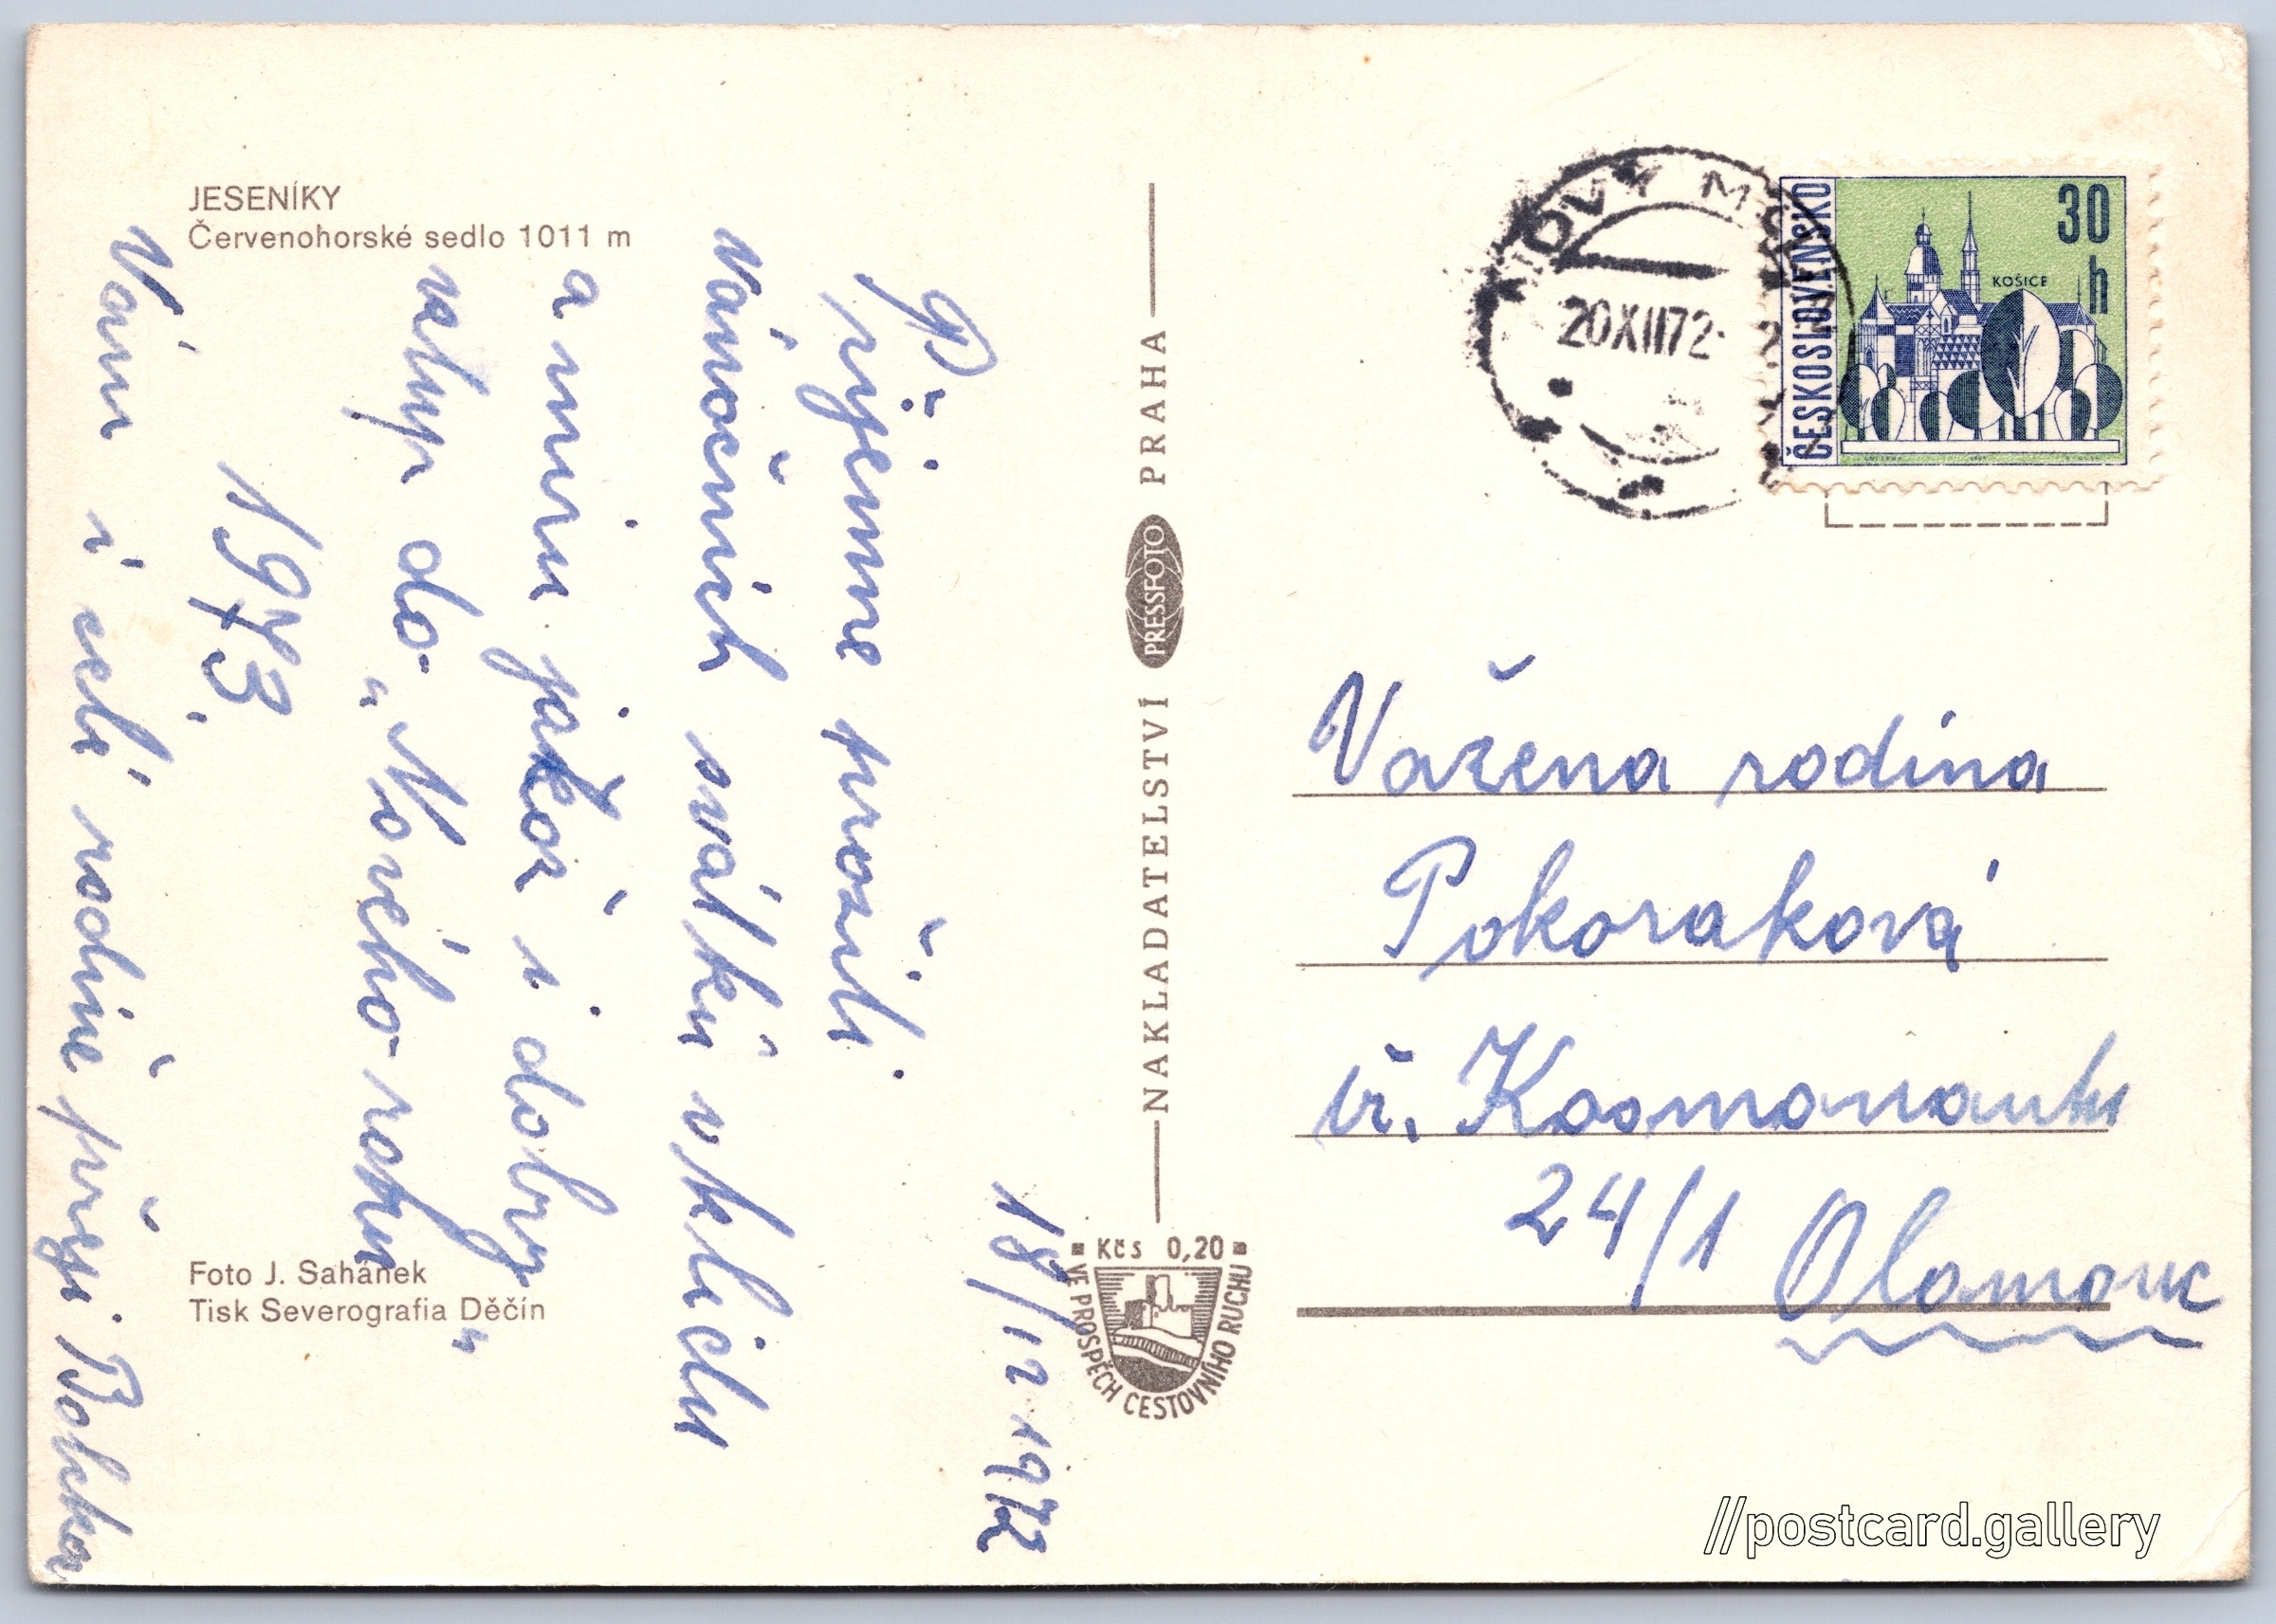 JESENÍKY
Červenohorské sedlo 1011 m
18/12 1972
Příjemné prožití
vánočních svátků v klidu
a míru jakož i dobrý
vstup do „Nového roku"
1973.
Vám i celé rodině přeji
Foto J. Sahánek
Tisk Severografia Děčín
NAKLADATELSTVÍ PRESSFOTO PRAHA
Kčs 0,20
VE PROSPĚCH CESTOVNÍHO RUCHU
20XII72
ČESKOSLOVENSKO
30 h
KOŠICE
Važena rodina
Pokoraková
tř. Kosmonautu
24/1 Olomouc
//postcard.gallery